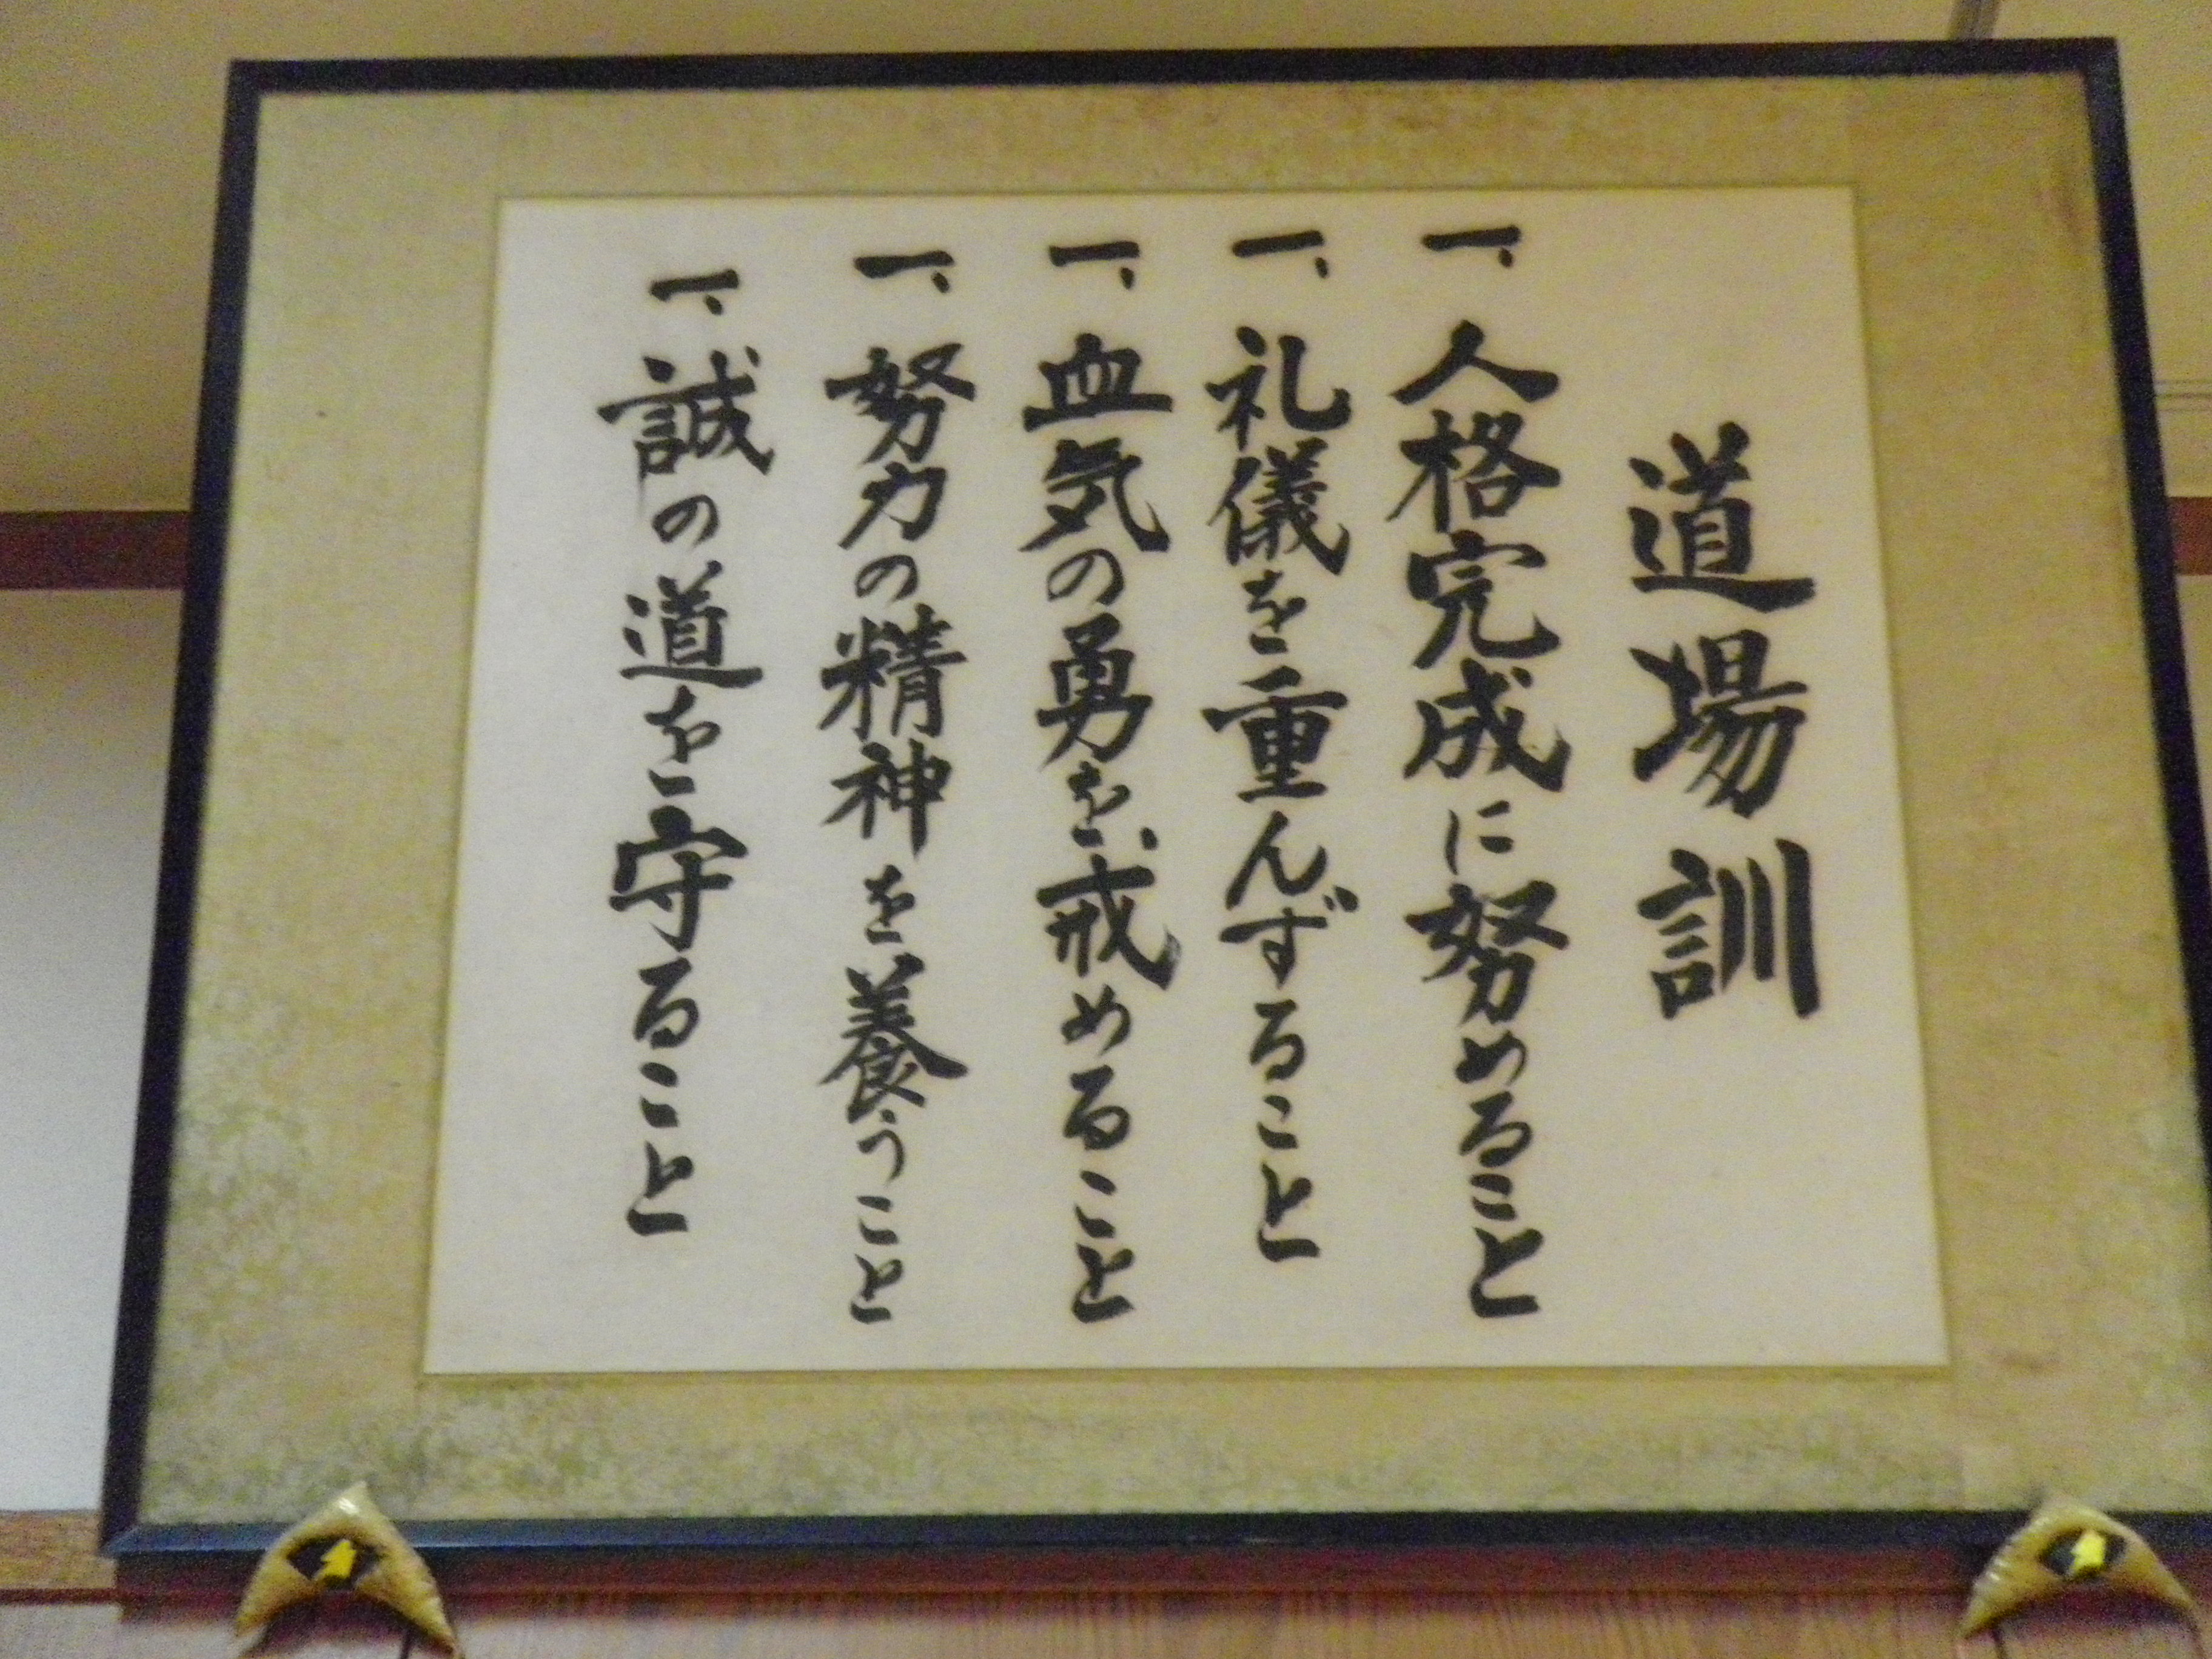 道場訓
一、人格完成に努めること
一、礼儀を重んずること
一、血気の勇を戒めること
一、努力の精神を養うこと
一、誠の道を守ること